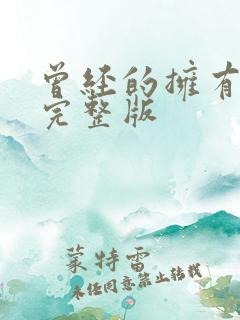 曾经的拥有
完整版
蒙特雷
未经同意禁止转载